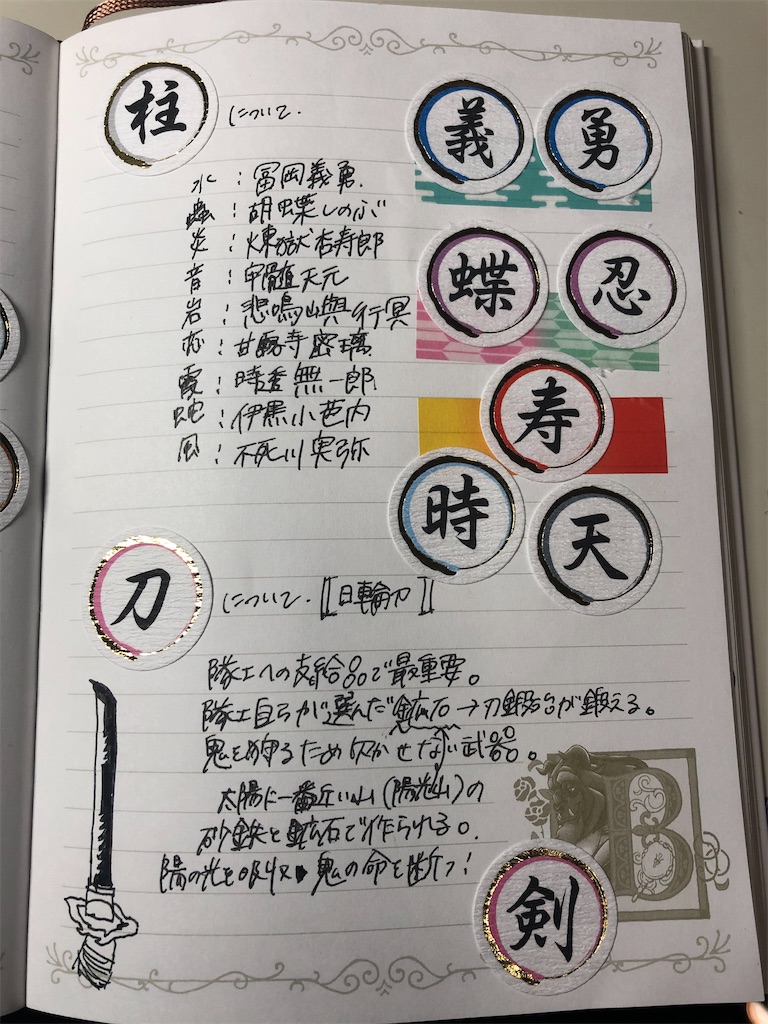 柱 について.
義 勇
水:冨岡義勇.
蟲:胡蝶しのぶ
炎:煉獄杏寿郎
音:宇髄天元
岩:悲鳴嶼行冥
恋:甘露寺蜜璃
霞:時透無一郎
蛇:伊黒小芭内
風:不死川実弥
蝶 忍
寿
時 天
刀 について.【日輪刀】
隊士への支給品で最重要。
隊士自らが選んだ鉱石→刀鍛冶が鍛える。
鬼を狩るため欠かせない武器。
太陽に一番近い山(陽光山)の
砂鉄と鉱石で作られる。
陽の光を吸収→鬼の命を断つ!
B
剣